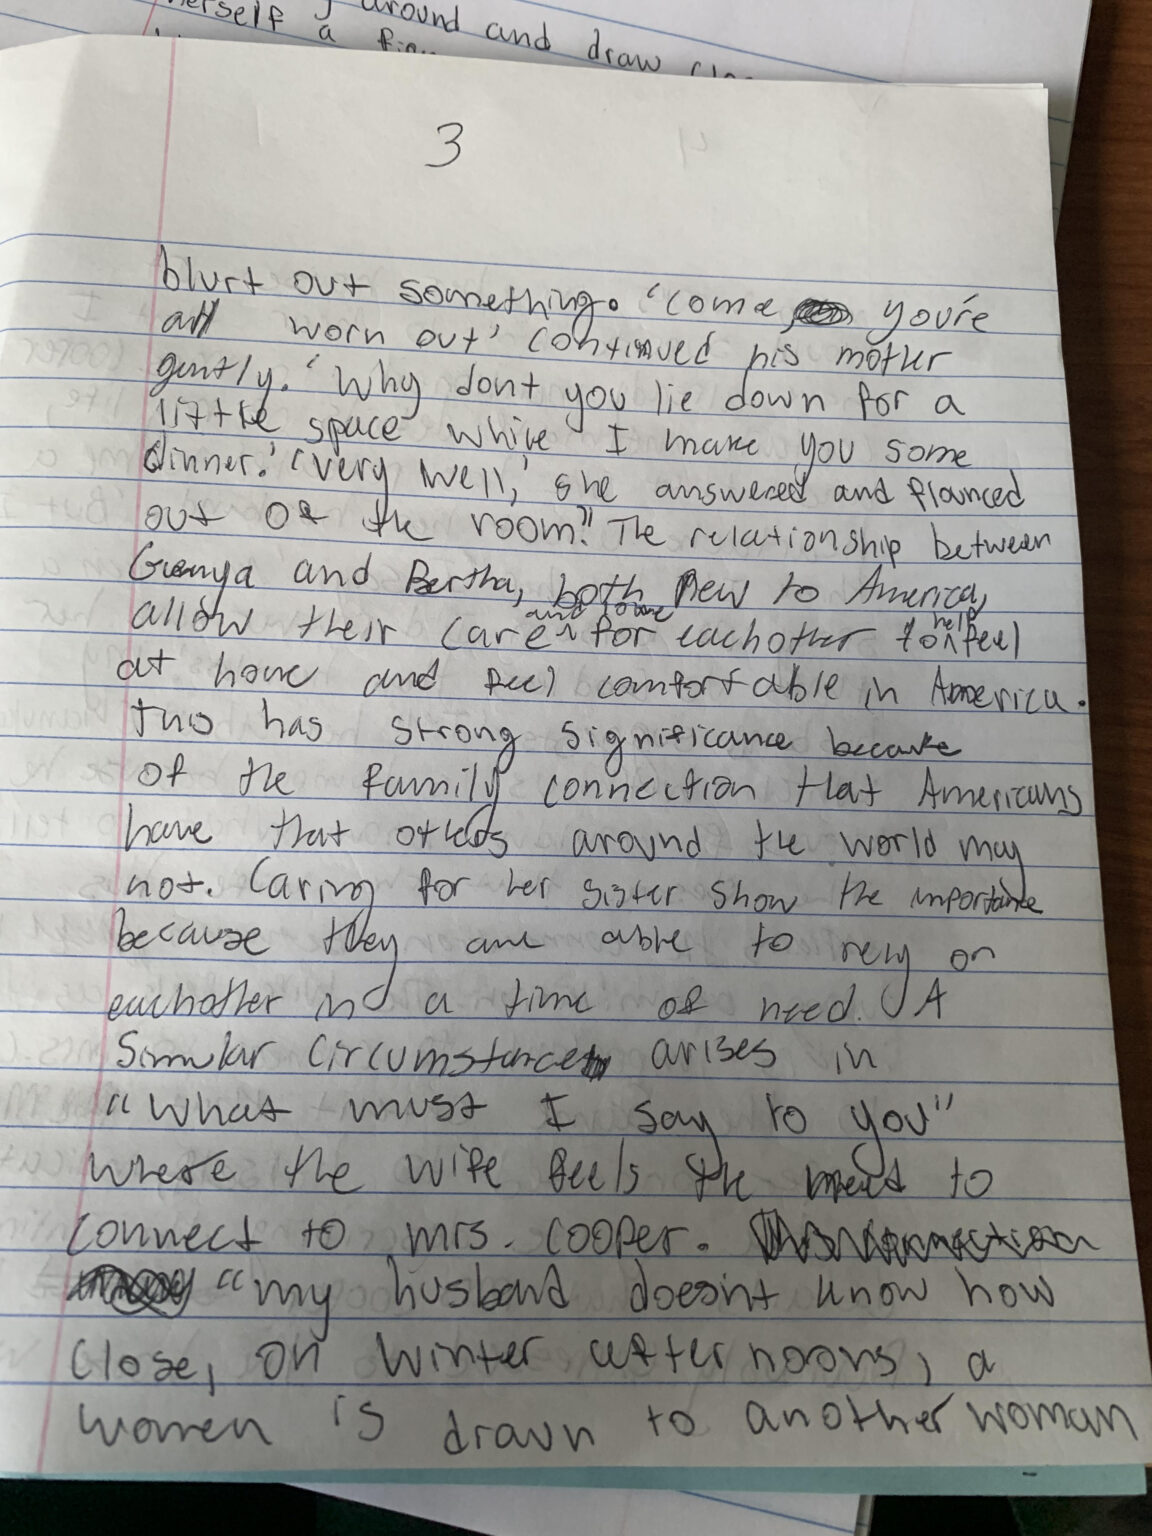 herself around and draw
a
3
blurt out something. 'come you're
all worn out' continued his mother
gently. 'Why dont you lie down for a
little space while I make you some
dinner.' 'very well,' she answered and flounced
out of the room." The relationship between
Genya and Bertha, both new to America,
and love help
allow their care for eachother to feel
at home and feel comfortable in America.
This has strong significance because
of the family connection that Americans
have that others around the world may
not. Caring for her sister show the importance
because they are able to rely on
eachother in a time of need. A
Similar Circumstance arises in
"What must I say to you"
where the wife feels the need to
connect to mrs. Cooper.
"my husband doesn't know how
close, on winter afternoons, a
women is drawn to another woman